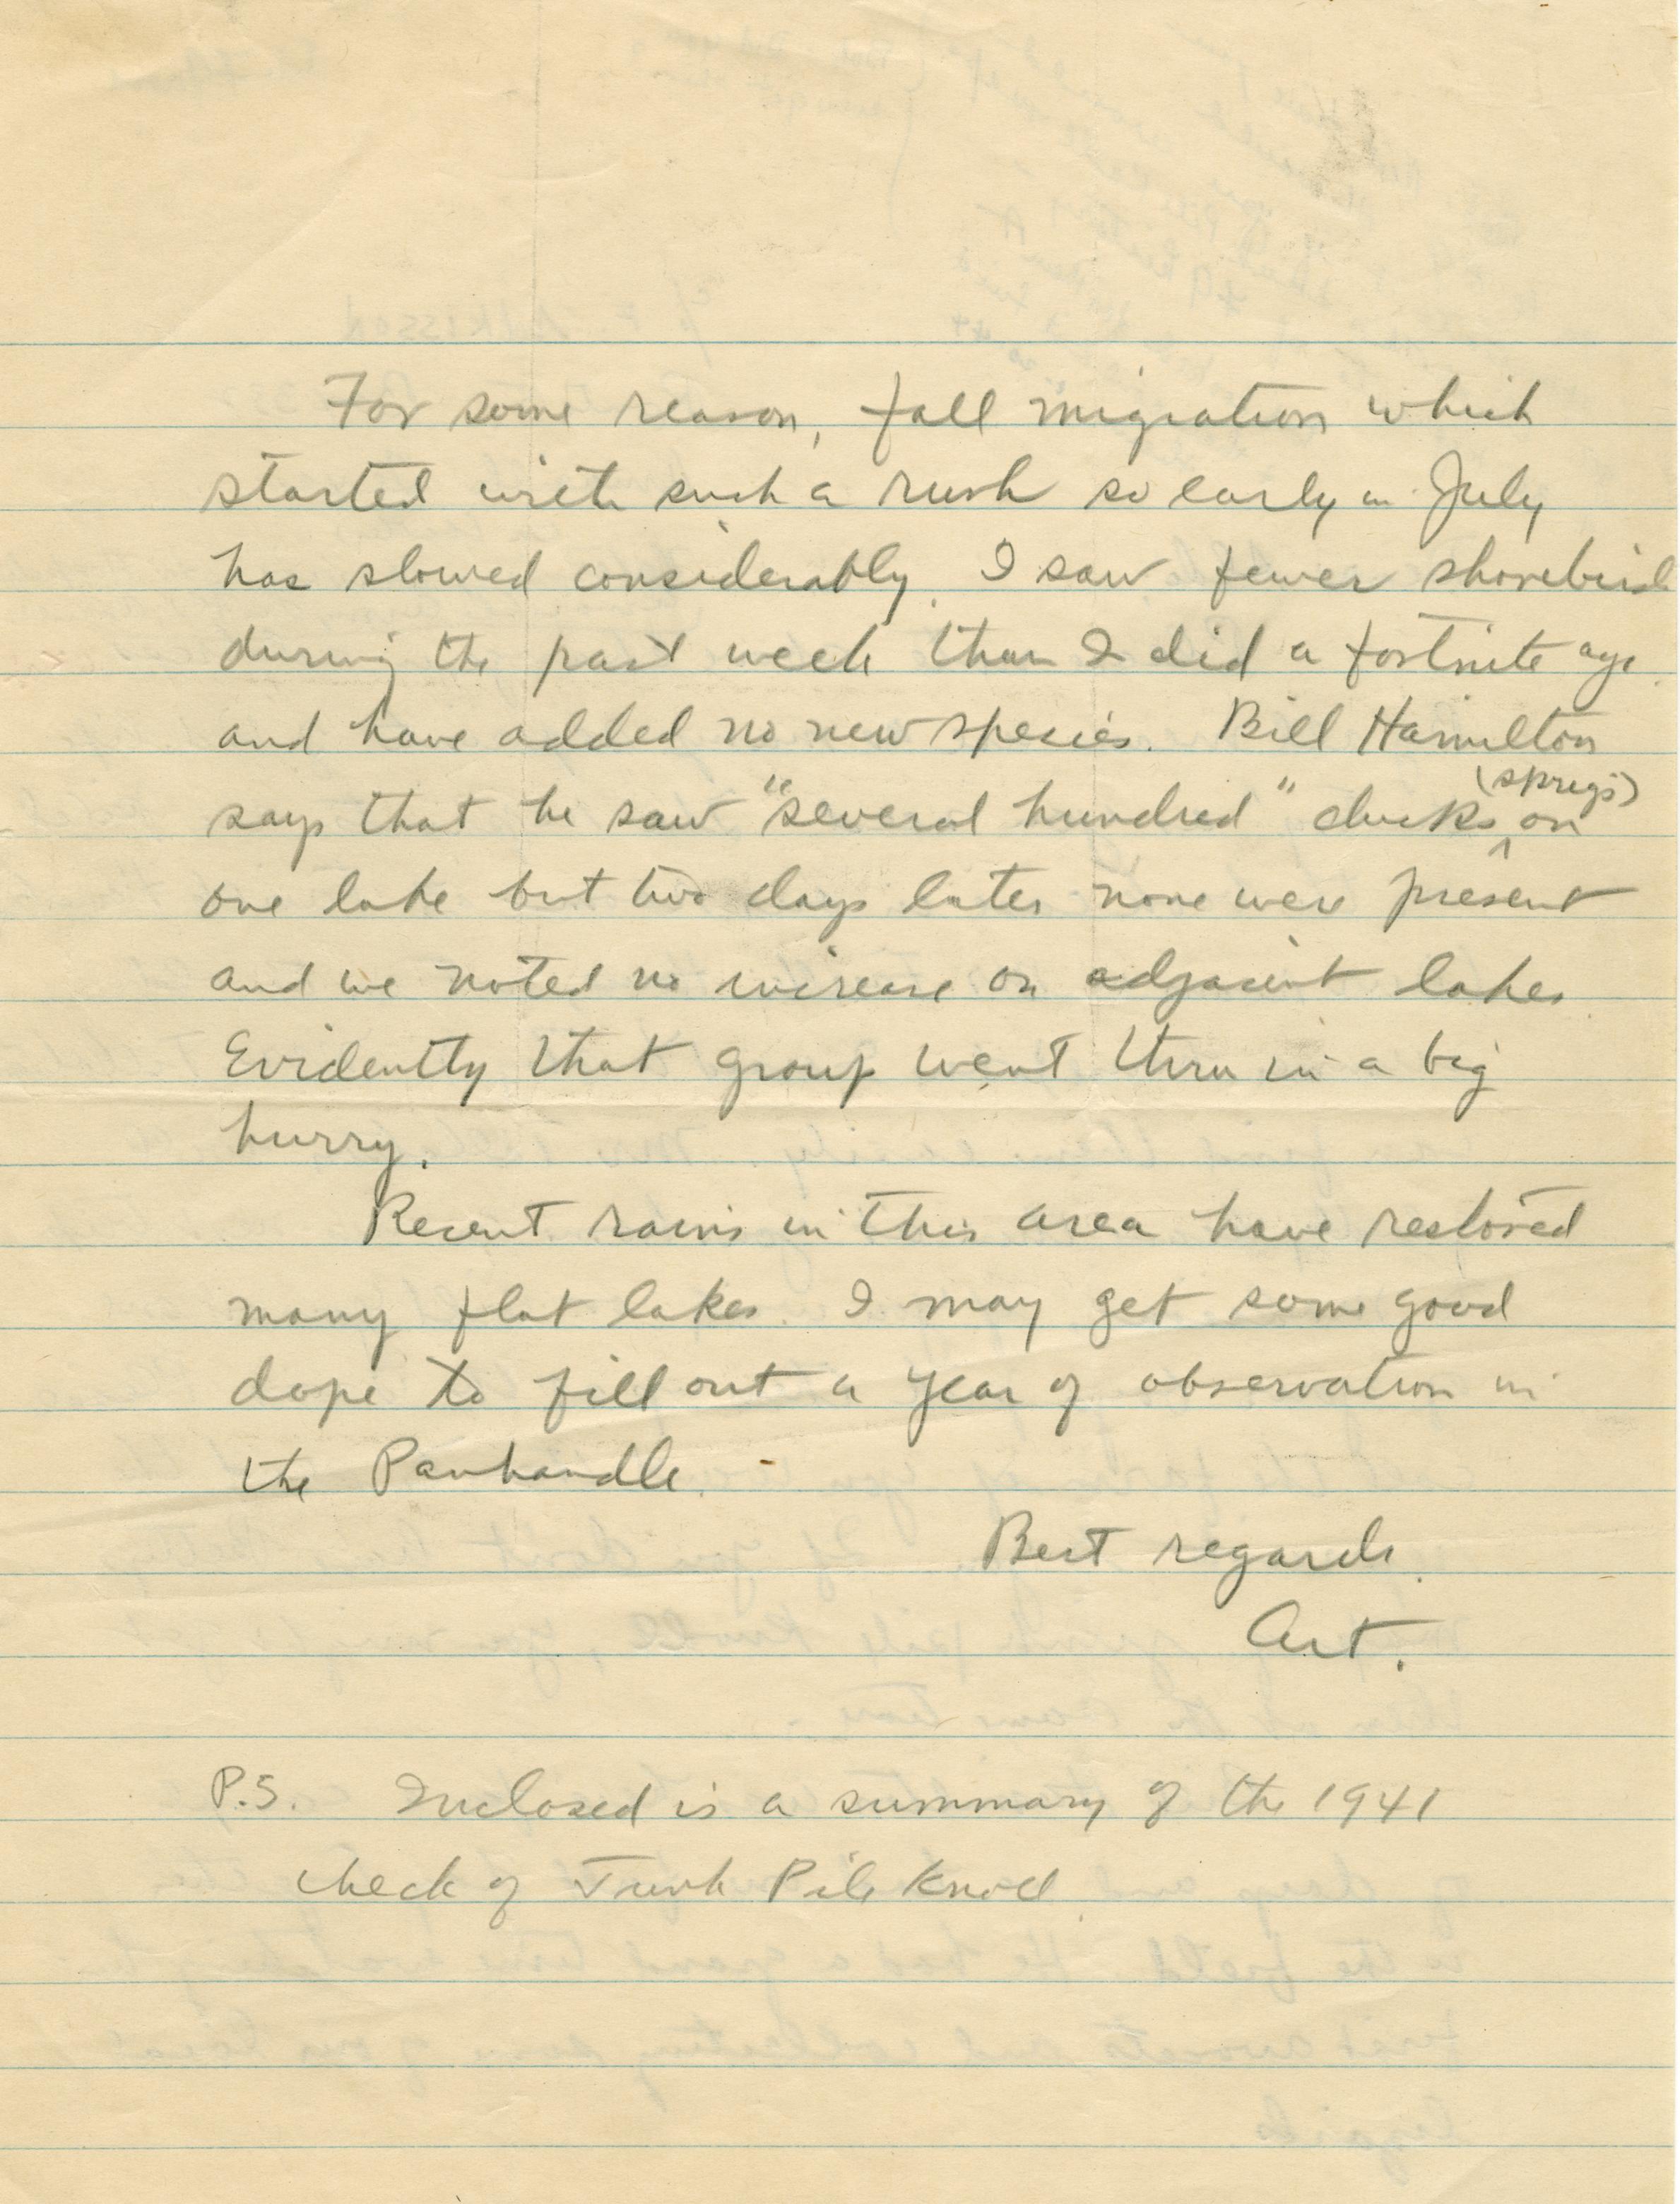 For some reason, fall migration which
started with such a rush so early in July
has slowed considerably. I saw fewer shorebirds
during the past week than I did a fortnite ago
and have added no new species. Bill Hamilton
says that he saw "several hundred" ducks (sprigs) on
one lake but two days later none were present
and we noted no increase on adjacent lakes.
Evidently that group went thru in a big
hurry.
Recent rains in this area have restored
many flat lakes. I may get some good
dope to fill out a year of observation in
the Panhandle.
Best regards.
Art.
P.S. Inclosed is a summary of the 1941
check of Junk Pile Knoll.